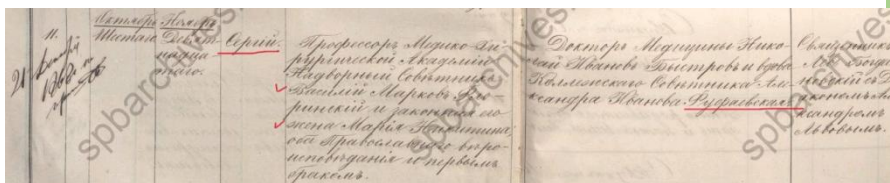 11.
Октябрь Ноябрь
Шестаго Девят-
надца-
таго.
Сергѣй.
Профессоръ Медико-Хи-
рургической Академіи
Надворный Совѣтникъ
Василій Марковъ Фло-
ринскій и законная его
жена Марія Никитина,
оба Православнаго вѣро-
исповѣданія и первымъ
бракомъ.
Докторъ Медицины Нико-
лай Ивановъ Быстровъ и вдова
Коллежскаго Совѣтника Але-
ксандра Иванова Фуфаевская.
Священникъ
діакономъ Але-
ксандромъ
Львовымъ.
spbarchives
spbarchives